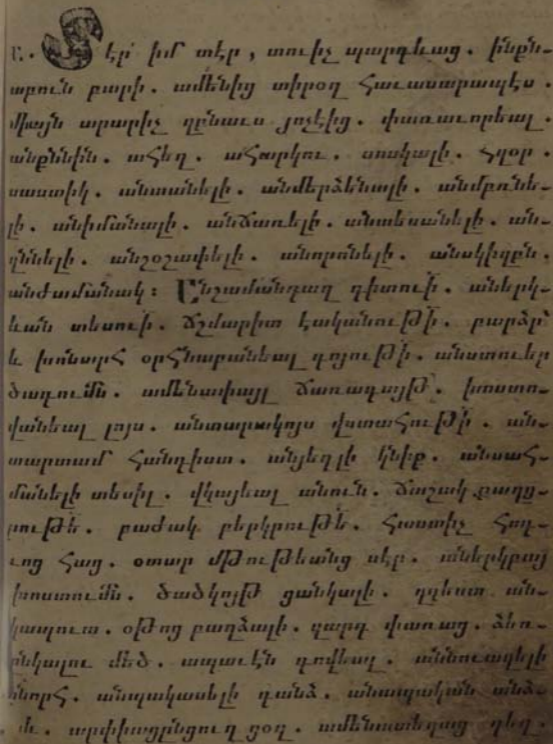 Ա. Տէր իմ տէր, տուիչ պարգևաց. ինքն-
աբուն բարի. ամենից տիրօղ հաւասարապէս.
միայն արարիչ զընաւս յոչէից. փառաւորեալ.
անքննին. ահեղ. ահարկու. սոսկալի. հզօր.
սաստիկ. անտանելի. անմերձենալի. անմբռնե-
լի. անիմանալի. անճառելի. անտեսանելի. ան-
զննելի. անշօշափելի. անորոնելի. անսկիզբն.
անժամանակ։ Անշամանդաղ գիտուի. աներկ-
ևան տեսուի. ճշմարիտ էականութի. բարձր
և խոնարհ օրհնաբանեալ գոյութի. անստուեր
ծագումն. ամենափայլ ճառագայթ. խոստո-
վանեալ լոյս. անտարակոյս վստահութի. ան-
տարտամ հանգիստ. անյեղլի կնիք. անսահ-
մանելի տեսիլ. վկայեալ անուն. ճաշակ քաղց-
րութե. բաժակ բերկրութե. հաստիչ հոգ-
ւոց հաց. օտար մթութեանց սէր. աներկբայ
խոստումն. ծածկոյթ ցանկալի. զգեստ ան-
կապուտ. օթոց բաղձալի. զարդ փառաց. ձեռ-
ընկալու մեծ. ապաւէն գովեալ. աննուազելի
շնորհ. անպակասելի գանձ. անապական անձ-
րև. արփիացընցուղ ցօղ. ամենատեղաց դեղ.